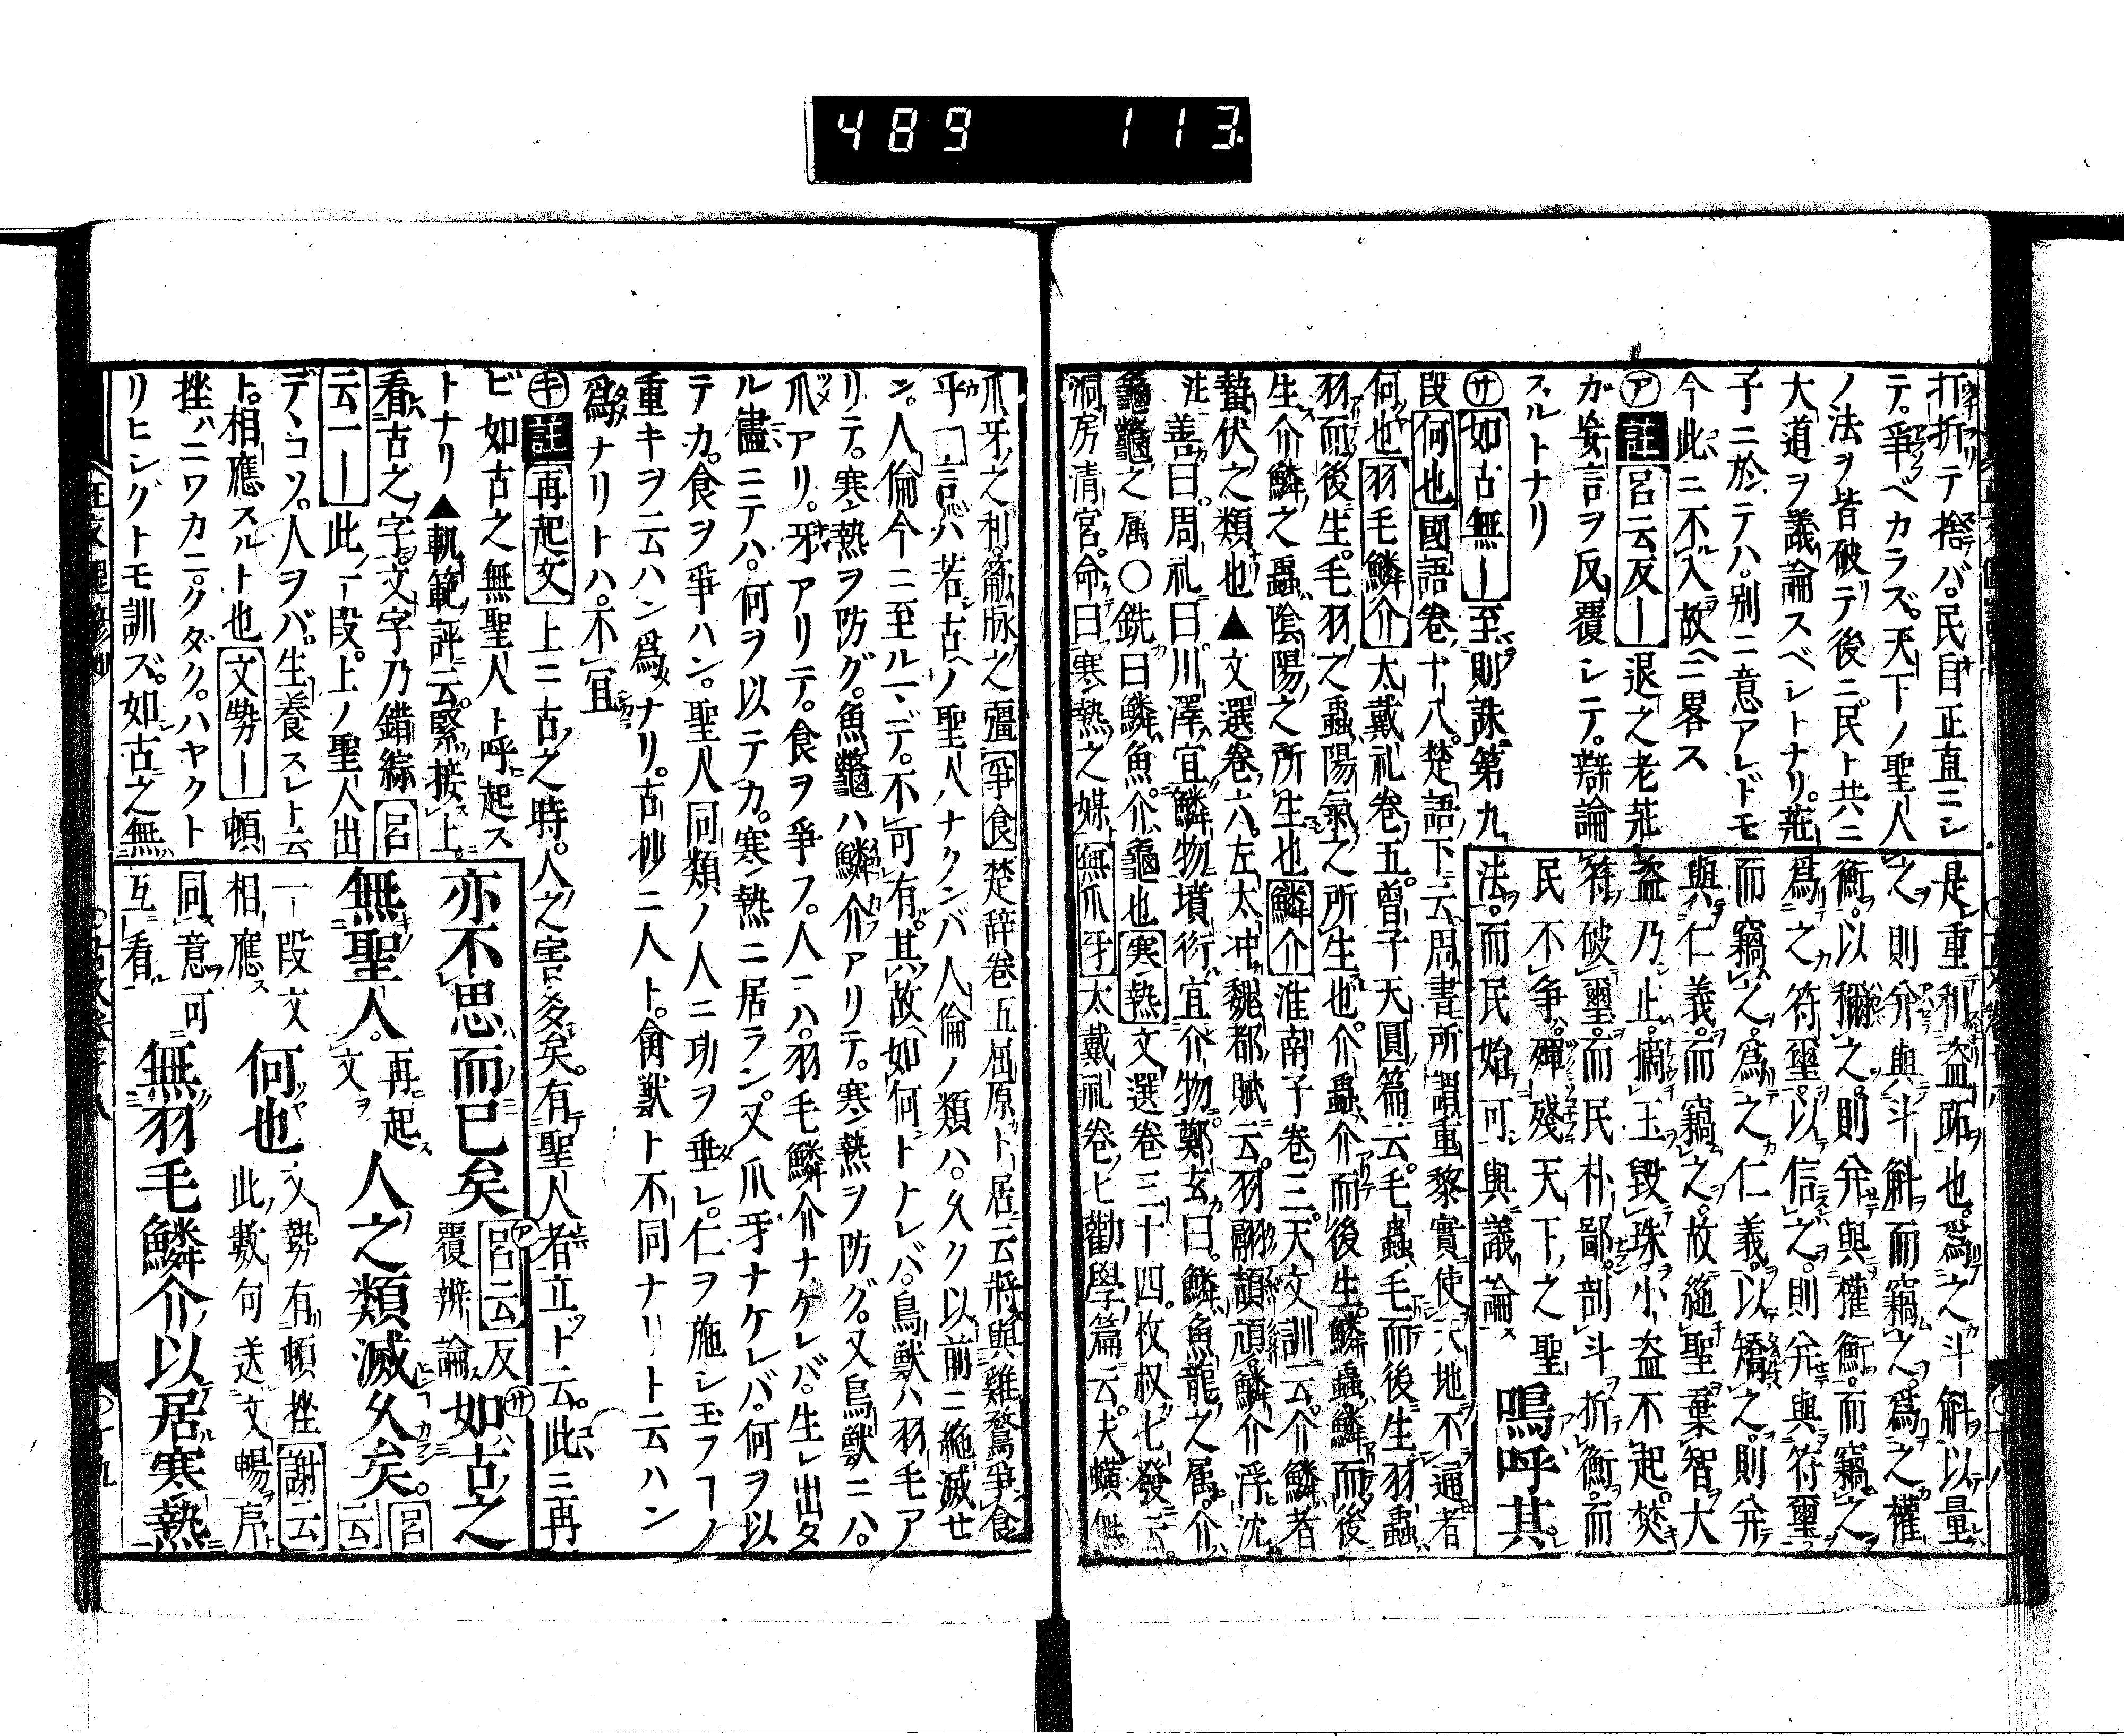 489 113
打折テ捨テバ。民自正直ニシ
テ。爭ベカラズ。天下ノ聖人
ノ法ヲ皆破テ後ニ。民ト共ニ
大道ヲ議論スベシトナリ。莊
子ニ於テハ。別ニ意アレドモ
今此ニ不入故ニ畧ス
㋐註呂云反ー退之老莊
ガ妄言ヲ反覆シテ。辯論
スルトナリ
是重利盗跖也。爲之斗斛以量
之則分與斗斛而竊之。爲之權
衡。以稱之。則分與權衡。而竊之
爲之符璽。以信之。則分與符璽
而竊之。爲之仁義。以矯之。則分
與仁義。而竊之。故絶聖棄智大
盗乃止。擿玉毀珠小盗不起。焚
符破璽。而民朴鄙。剖斗折衡。而
民不爭。殫殘天下之聖
法。而民始可與議論
嗚呼其
㋚如古無ー至則誅第九
段何也國語卷十八。楚語下云。周書所謂重黎實使天地不通者
何也羽毛鱗介太戴礼卷五。曽子天圓篇云。毛蟲毛而後生。羽蟲
羽而後生。毛羽之蟲陽氣之所生也。介蟲介而後生。鱗蟲鱗而後
生介鱗之蟲陰陽之所生也鱗介淮南子卷三。天文訓云。介鱗者
蟄伏之類也▲文選卷六。左太冲魏都賦云。羽翮頡頏鱗介浮沈。
注善曰。周礼曰。川澤宜鱗物墳衍宜介物。鄭玄曰。鱗魚龍之属。介
龜鼈之属○銑曰鱗魚。介龜也寒熱文選卷三十四。枚杈七發云。
洞房清宮。命曰寒熱之媒無爪牙太戴礼卷七勸學篇云。夫螾無
爪牙之利。筋脉之彊爭食楚辞卷五屈原卜居云將與雞鶩爭食
乎○言ハ若古ヘノ聖人ハナクンバ人倫ノ類ハ。久ク以前ニ絶滅せ
ン。人倫今ニ至ルマデ。不可有。其故如何トナレバ。鳥獸ハ羽毛ア
リテ。寒熱ヲ防グ。魚鼈ハ鱗介アリテ。寒熱ヲ防グ。又鳥獸ニハ。
爪アリ。牙アリテ。食ヲ爭フ。人ニハ。羽毛鱗介ナケレバ。生レ出タ
ル儘ニテハ。何ヲ以テカ。寒熱ニ居ラン。又爪牙ナケレバ。何ヲ以
テカ。食ヲ爭ハン。聖人同類ノ人ニ功ヲ垂レ。仁ヲ施シ玉フヿノ
重キヲ云ハン爲ナリ。古抄ニ人ト。禽獸ト不同ナリト云ハン
爲ナリトハ。不宜
㋖註再起文上ニ古之時。人之害多矣。有聖人者立ト云。此ニ再
ビ如古之無聖人ト呼起ス
トナリ▲軌範評云。緊接上。
看古之字。文字乃錯綜呂
云一ー此一段。上ノ聖人出
デヽコソ。人ヲバ。生養スレト云
ト。相應スルト也文勢ー頓
挫ハニワカニ。クダク。ハヤクト
リヒシグトモ訓ズ。如古之無
亦不思而已矣呂云反覆辨論如古之
無聖人。再起文人之類滅久矣。呂云
一段文相應何也文勢有頓挫謝云此數句送文暢序
同意可互看無羽毛鱗介以居寒熱